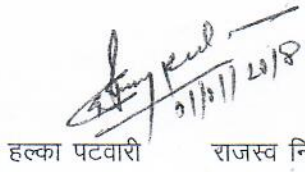 01/01/2018
हल्का पटवारी राजस्व नि